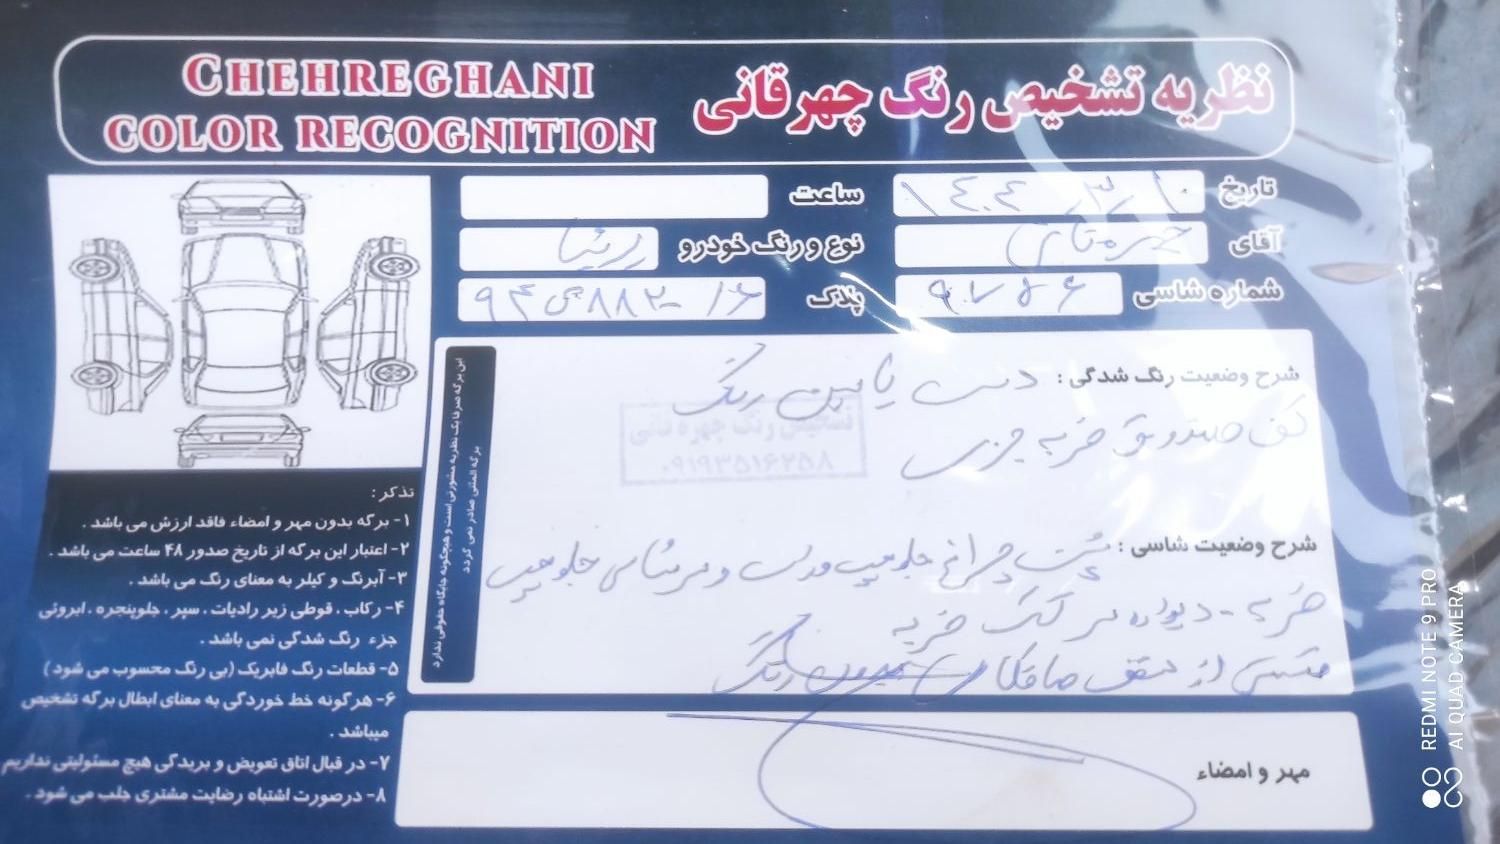 CHEHREGHANI
COLOR RECOGNITION
نظریه تشخیص رنگ چهرقانی
تاریخ ۱۴۰۴_۳_۱۰
ساعت
آقای
نوع و رنگ خودرو
شماره شاسی ۹۷۵۶
پلاک
شرح وضعیت رنگ شدگی :
رنگ
کف صندوق ضربه جزیی
تشخیص رنگ چهره قانی
۰۹۱۹۳۵۱۶۲۵۸
شرح وضعیت شاسی : پشت چراغ جلو چپ و سرشاسی جلو چپ
ضربه - دیواره ضربه
قسمتی از سقف صافکاری بدون رنگ
این برگه صرفا یک نظریه مشورتی است و هیچگونه جایگاه حقوقی ندارد
برگه المثنی صادر نمی گردد
تذکر :
۱- برگه بدون مهر و امضاء فاقد ارزش می باشد .
۲- اعتبار این برگه از تاریخ صدور ۴۸ ساعت می باشد .
۳- آبرنگ و کیلر به معنای رنگ می باشد .
۴- رکاب ، قوطی زیر رادیات ، سپر ، جلوپنجره ، ابروئی
جزء رنگ شدگی نمی باشد .
۵- قطعات رنگ فابریک (بی رنگ محسوب می شود )
۶- هرگونه خط خوردگی به معنای ابطال برگه تشخیص
میباشد .
۷- در قبال اتاق تعویض و بریدگی هیچ مسئولیتی نداریم
۸- درصورت اشتباه رضایت مشتری جلب می شود .
مهر و امضاء
REDMI NOTE 9 PRO
AI QUAD CAMERA